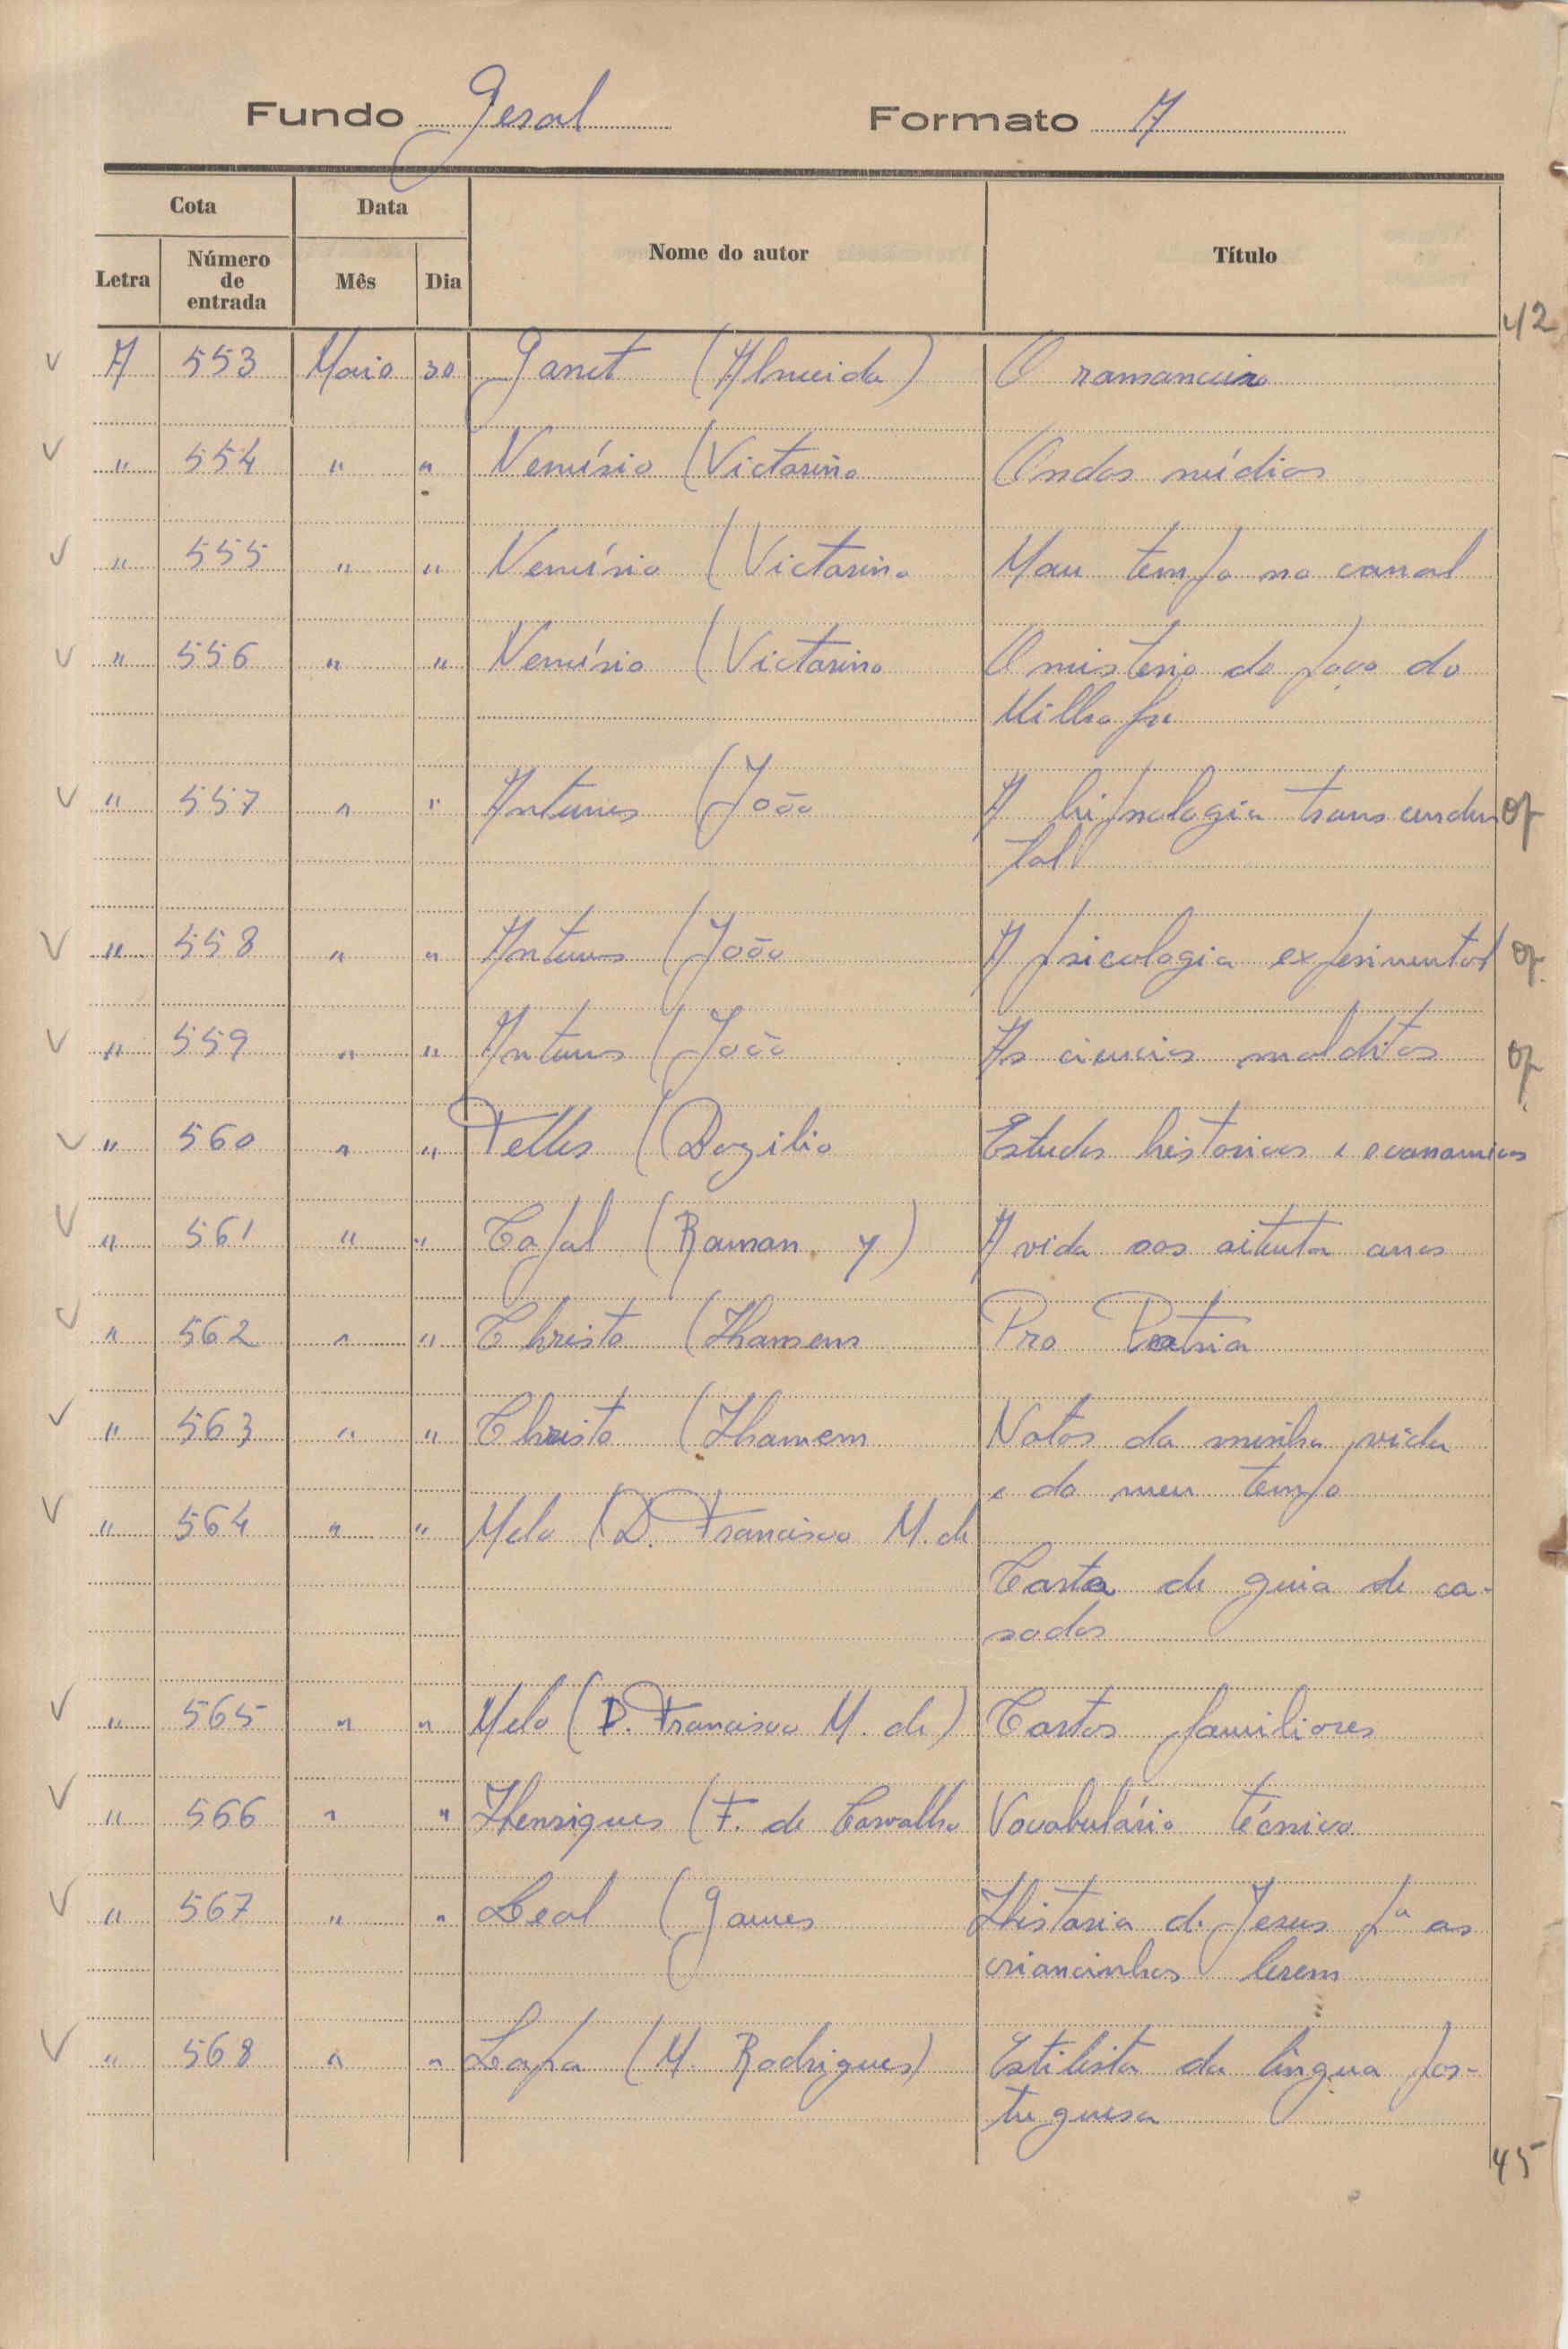 Fundo Geral Formato A
Cota Data Nome do autor Título
Letra Número de entrada Mês Dia
42
V A 553 Maio 30 Garret (Almeida) O romanceiro
V " 554 " " Nemésio (Victorino Ondas médias
V " 555 " " Nemésio (Victorino Mau tempo no canal
V " 556 " " Nemésio (Victorino O misterio do paço do
Milhafre
V " 557 " " Antunes (João A hipnologia transcenden
tal
V " 558 " " Antunes (João A psicologia experimental
V " 559 " " Antunes (João As ciencias malditas
V " 560 " " Telles (Bazilio Estudos historicos e economicos
V " 561 " " Cajal (Ramon y) A vida aos oitenta anos
V " 562 " " Christo (Homem Pro Patria
V " 563 " " Christo (Homem Notas da minha vida
e do meu tempo
V " 564 " " Melo (D. Francisco M. de
Carta de guia de ca-
sados
V " 565 " " Melo (D. Francisco M. de) Cartas familiares
V " 566 " " Henriques (F. de Carvalho Vocabulário técnico
V " 567 " " Leal (Gomes Historia de Jesus pª as
criancinhas lerem
V " 568 " " Lapa (M. Rodrigues) Estilista da lingua por-
tuguesa
45